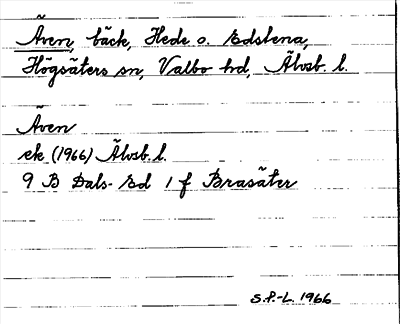 Även, bäck, Hede o. Edstena,
Högsäters sn, Valbo hd, Älvsb. l.
Även
ek (1966) Älvsb. l.
9 B Dals-Ed 1 f Brasäter
S.P.-L. 1966